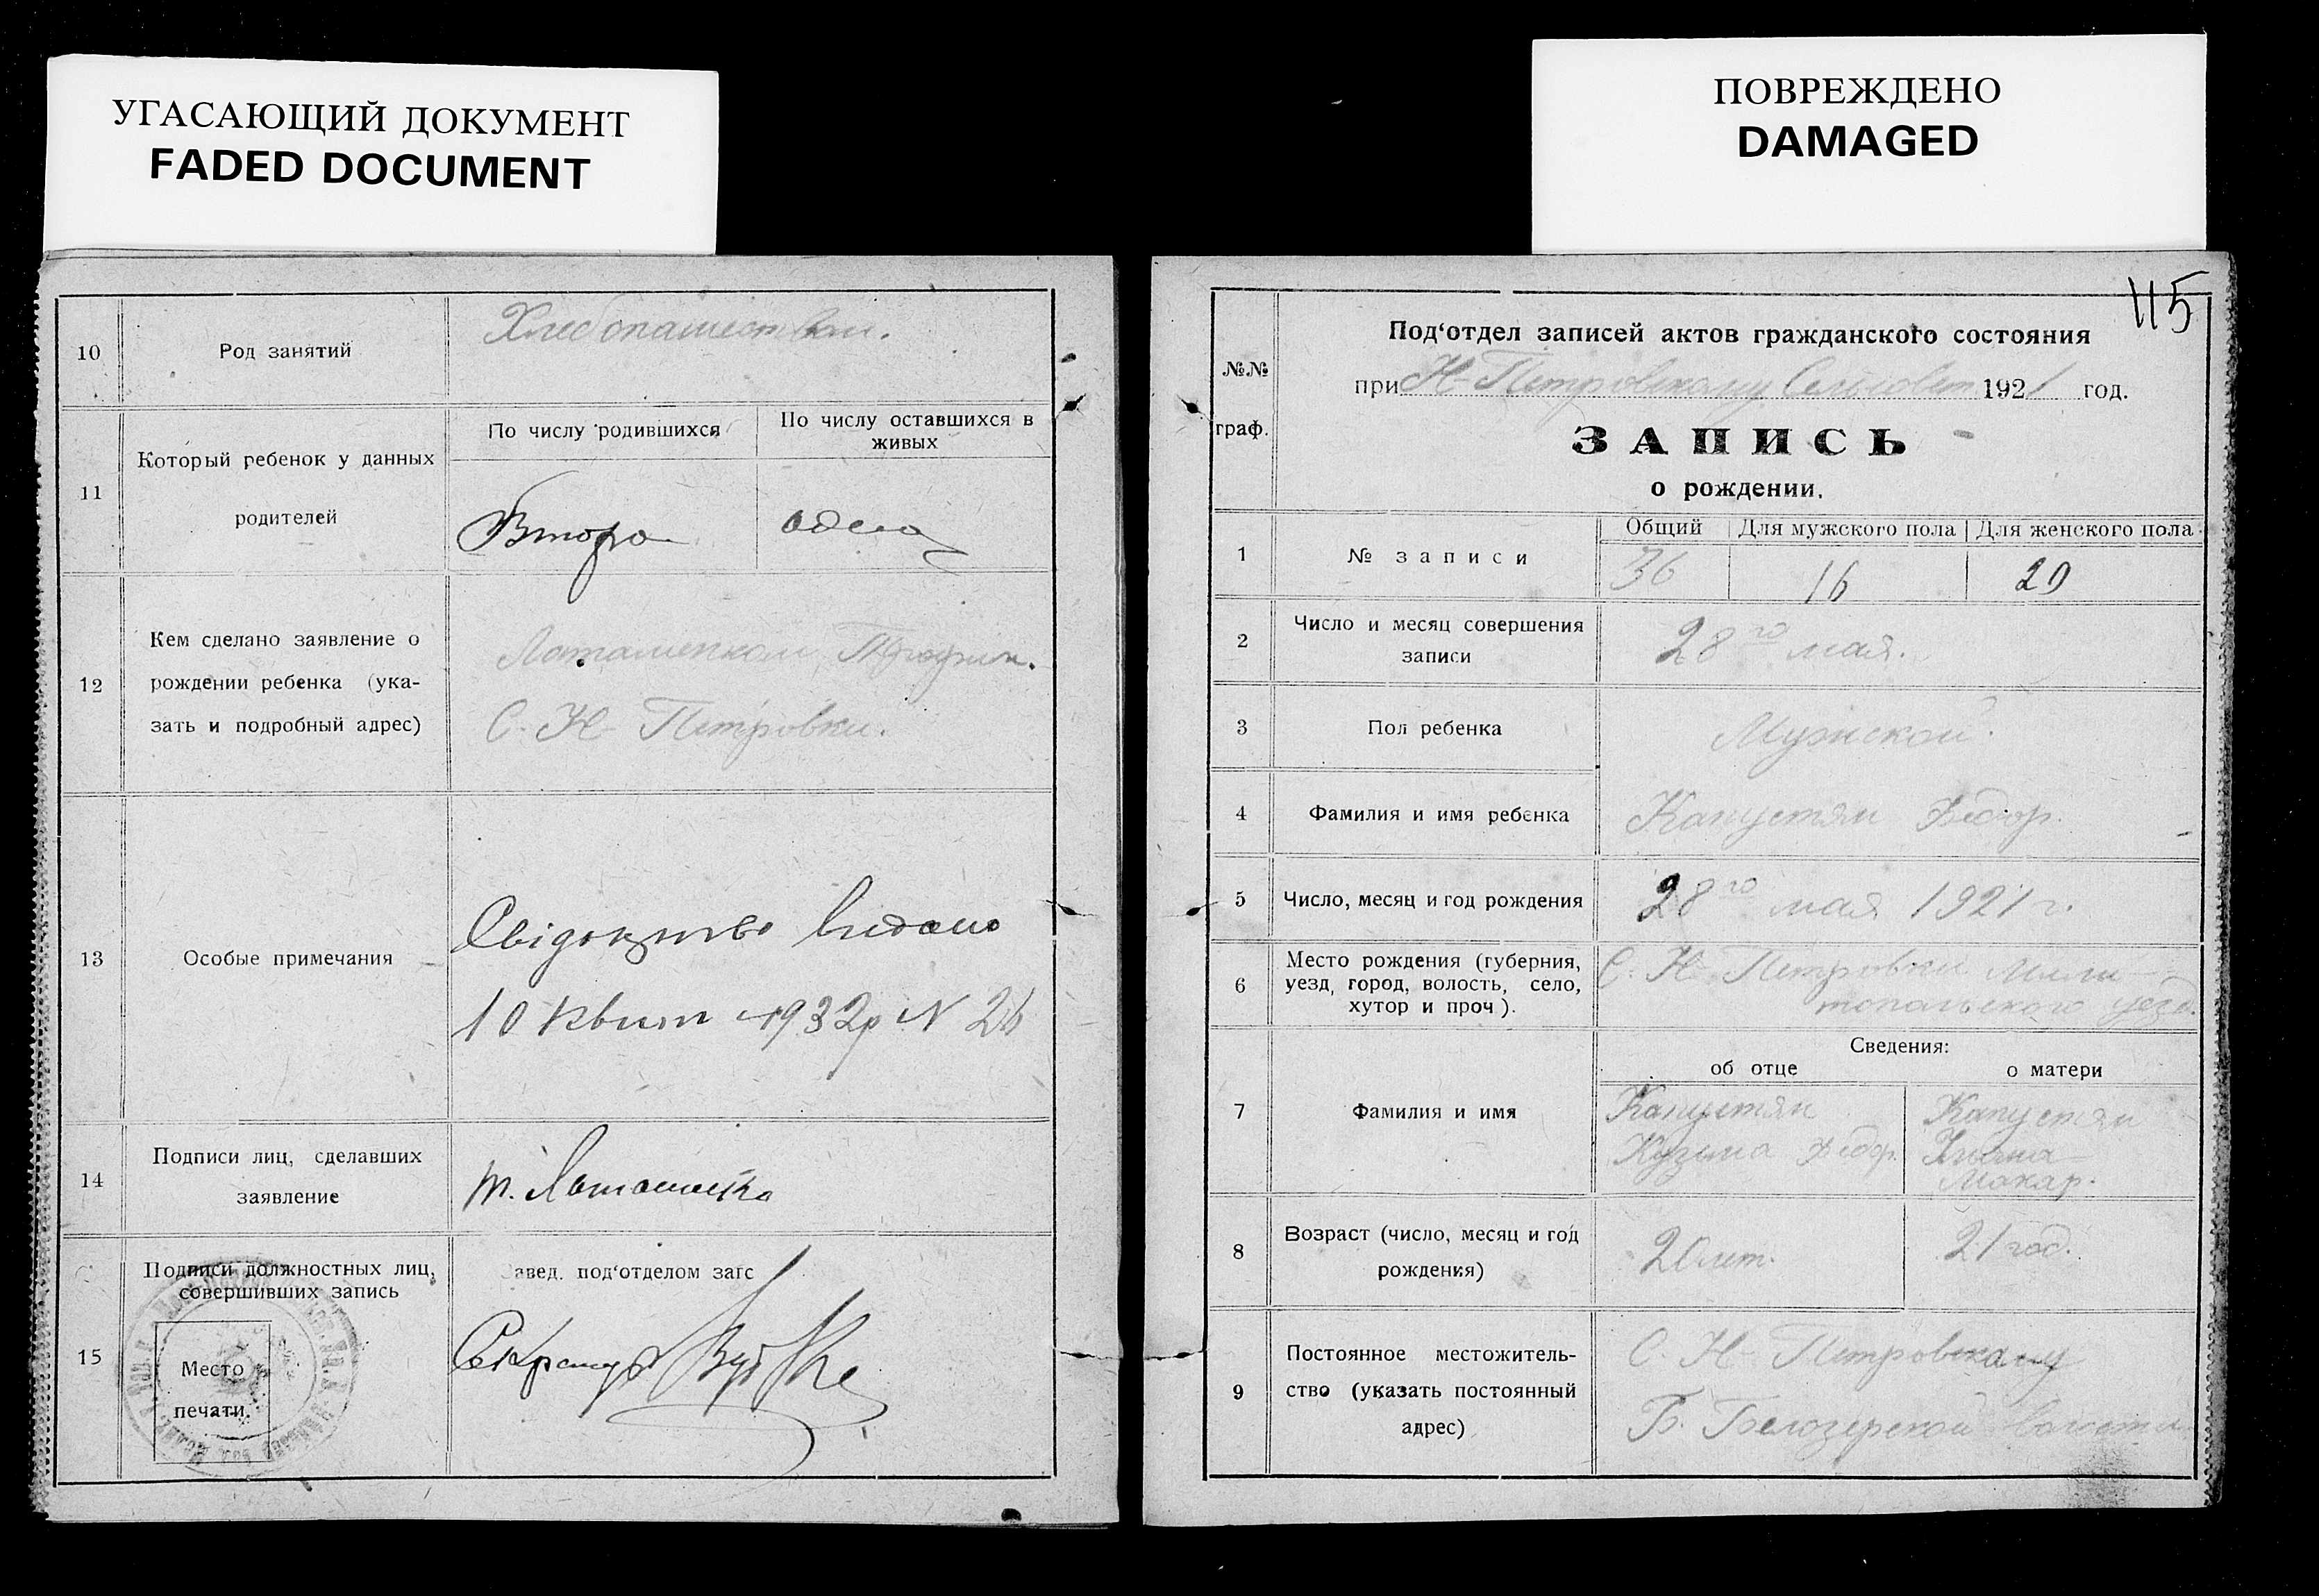 УГАСАЮЩИЙ ДОКУМЕНТ
FADED DOCUMENT
ПОВРЕЖДЕНО
DAMAGED
10 Род занятий
11 Который ребенок у данных
родителей
По числу родившихся
По числу оставшихся в
живых
Второ
12 Кем сделано заявление о
рождении ребенка (ука-
зать и подробный адрес)
С. Н-Петровки.
13 Особые примечания
Свідоцтво видано
10 Квит 1932р N 26
14 Подписи лиц, сделавших
заявление
15 Подписи должностных лиц,
совершивших запись
Место
печати.
авед. под‘отделом загс
Секретарь
115
№№
граф.
Под‘отдел записей актов гражданского состояния
при Н-Петровскому Сельсовет 1921 год.
ЗАПИСЬ
о рождении.
1 № записи
Общий Для мужского пола Для женского пола
36 16 20
2 Число и месяц совершения
записи
28го мая.
3 Пол ребенка
Мужской.
4 Фамилия и имя ребенка
Капустян Федор.
5 Число, месяц и год рождения
28го мая 1921 г.
6 Место рождения (губерния,
уезд, город, волость, село,
хутор и проч).
С. Н-Петровки Мели-
топольского уезд.
Сведения:
об отце
о матери
7 Фамилия и имя
Капустян
Кузьма Федор.
Капустян
Макар.
8 Возраст (число, месяц и год
рождения)
20 лет.
21 год.
9 Постоянное местожитель-
ство (указать постоянный
адрес)
С. Н-Петровкаму
Б. Белозерской волости